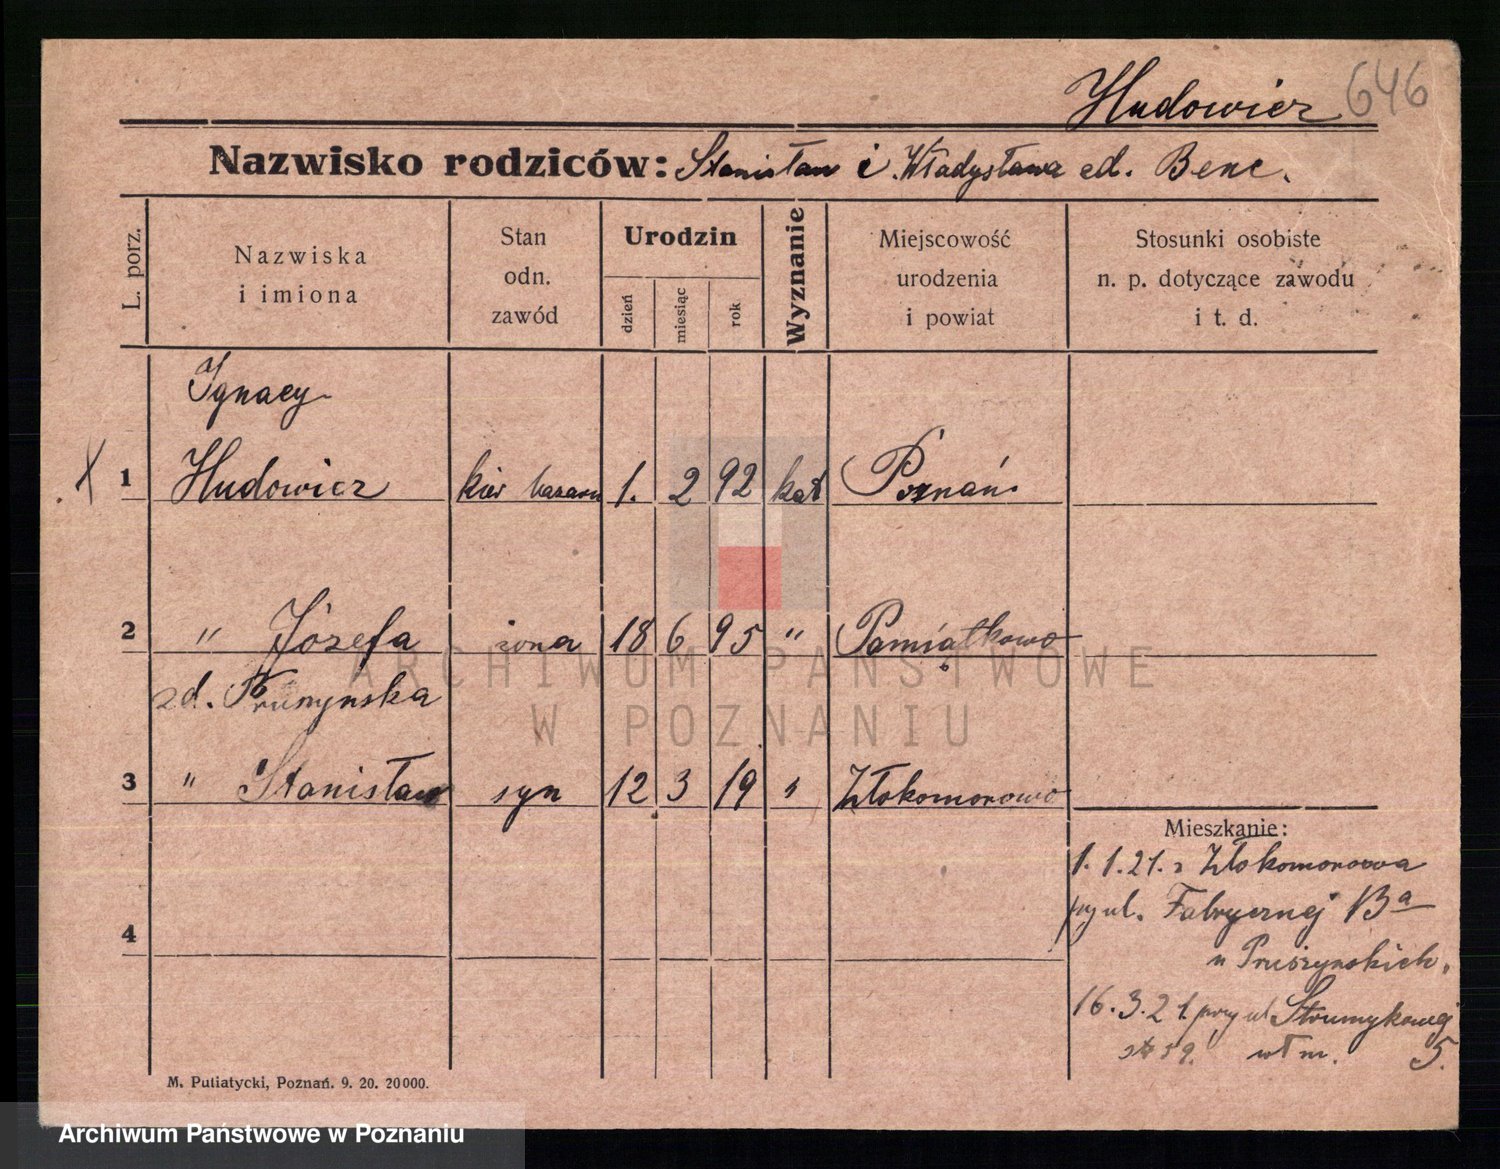 Hudowicz 646
Nazwisko rodziców: Stanisław i Władysława zd. Benc.
L. porz.
Nazwiska
i imiona
Stan
odn.
zawód
Urodzin
dzień
miesiąc
rok
Wyznanie
Miejscowość
urodzenia
i powiat
Stosunki osobiste
n. p. dotyczące zawodu
i t. d.
Ignacy
X 1 Hudowicz kier bazaru 1. 2 92 kat Poznań
2 " Józefa żona 18 6 95 " Pamiątkowo
zd.
3 " Stanisław syn 12 3 19 " Złokomorowo
4
Mieszkanie:
1.1.21. z Złokomorowa
przy ul. Fabrycznej 13a
u Pruszynskich.
16.3.21 przy ul Strumykowej
wł m. 5.
M. Putiatycki, Poznań. 9. 20. 20000.
ARCHIWUM PAŃSTWOWE
W POZNANIU
Archiwum Państwowe w Poznaniu